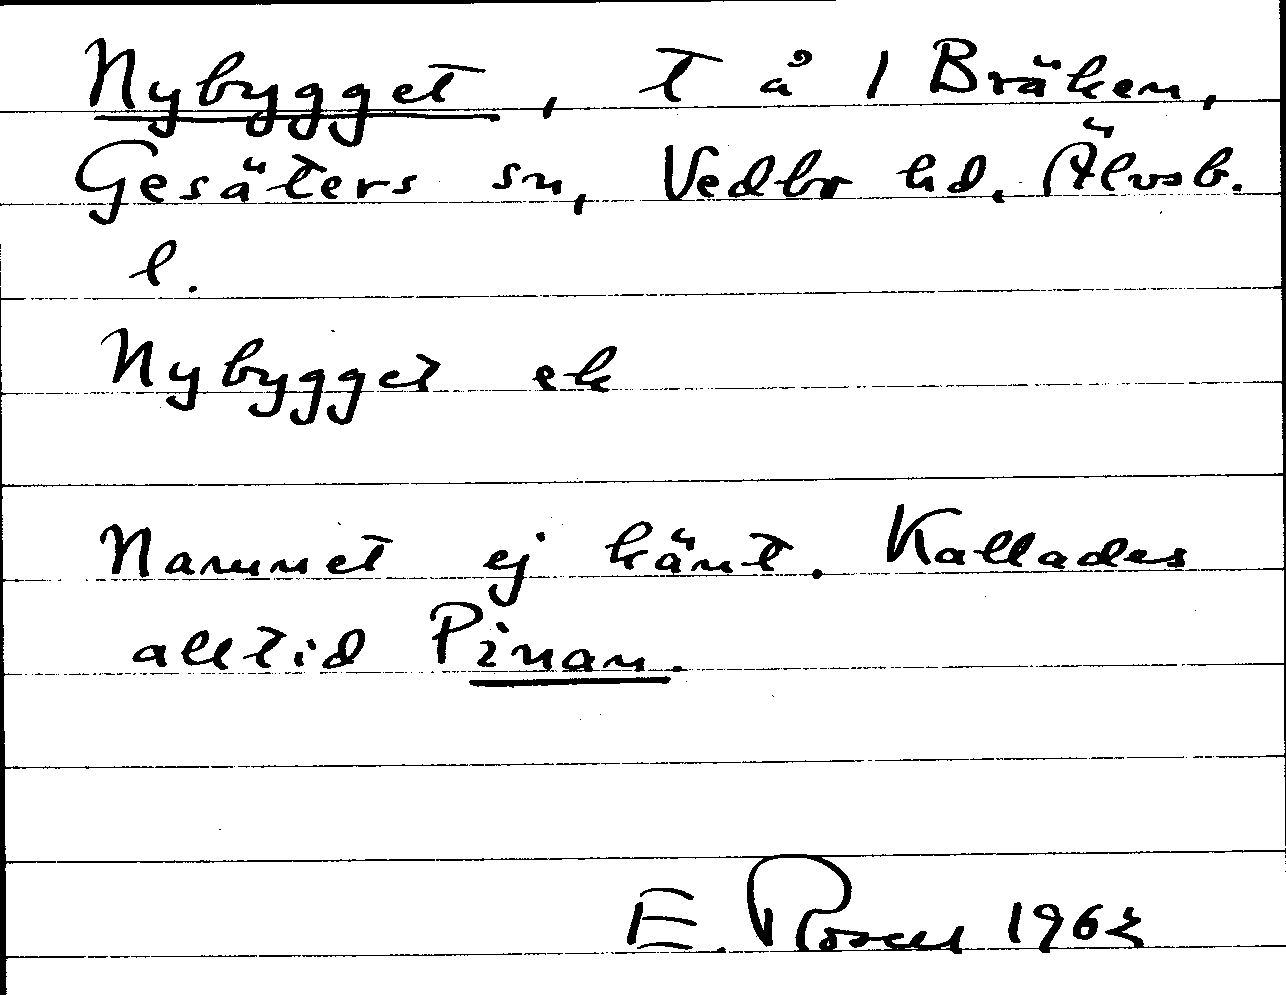 Nybygget, t å 1 Bräken,
Gesäters sn, Vedbo hd. Älvsb.
l.
Nybygget ek
Namnet ej känt. Kallades
alltid Pinan.
E. Rosen 1963